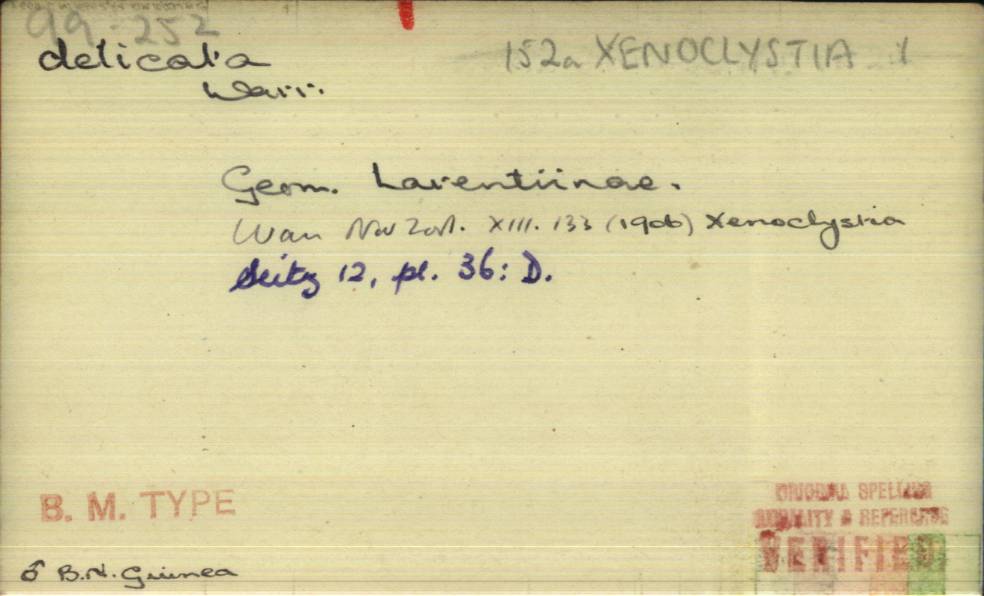 99-252
delicata
Warr.
152a XENOCLYSTIA
Geom. Larentiinae.
Warr Nov Zool. XIII. 133 (1906) Xenoclystia
Seitz 12, pl. 36: D.
B. M. TYPE
ORIGINAL SPELLING
LOCALITY & REFERENCE
VERIFIED
♂ B.N. Guinea